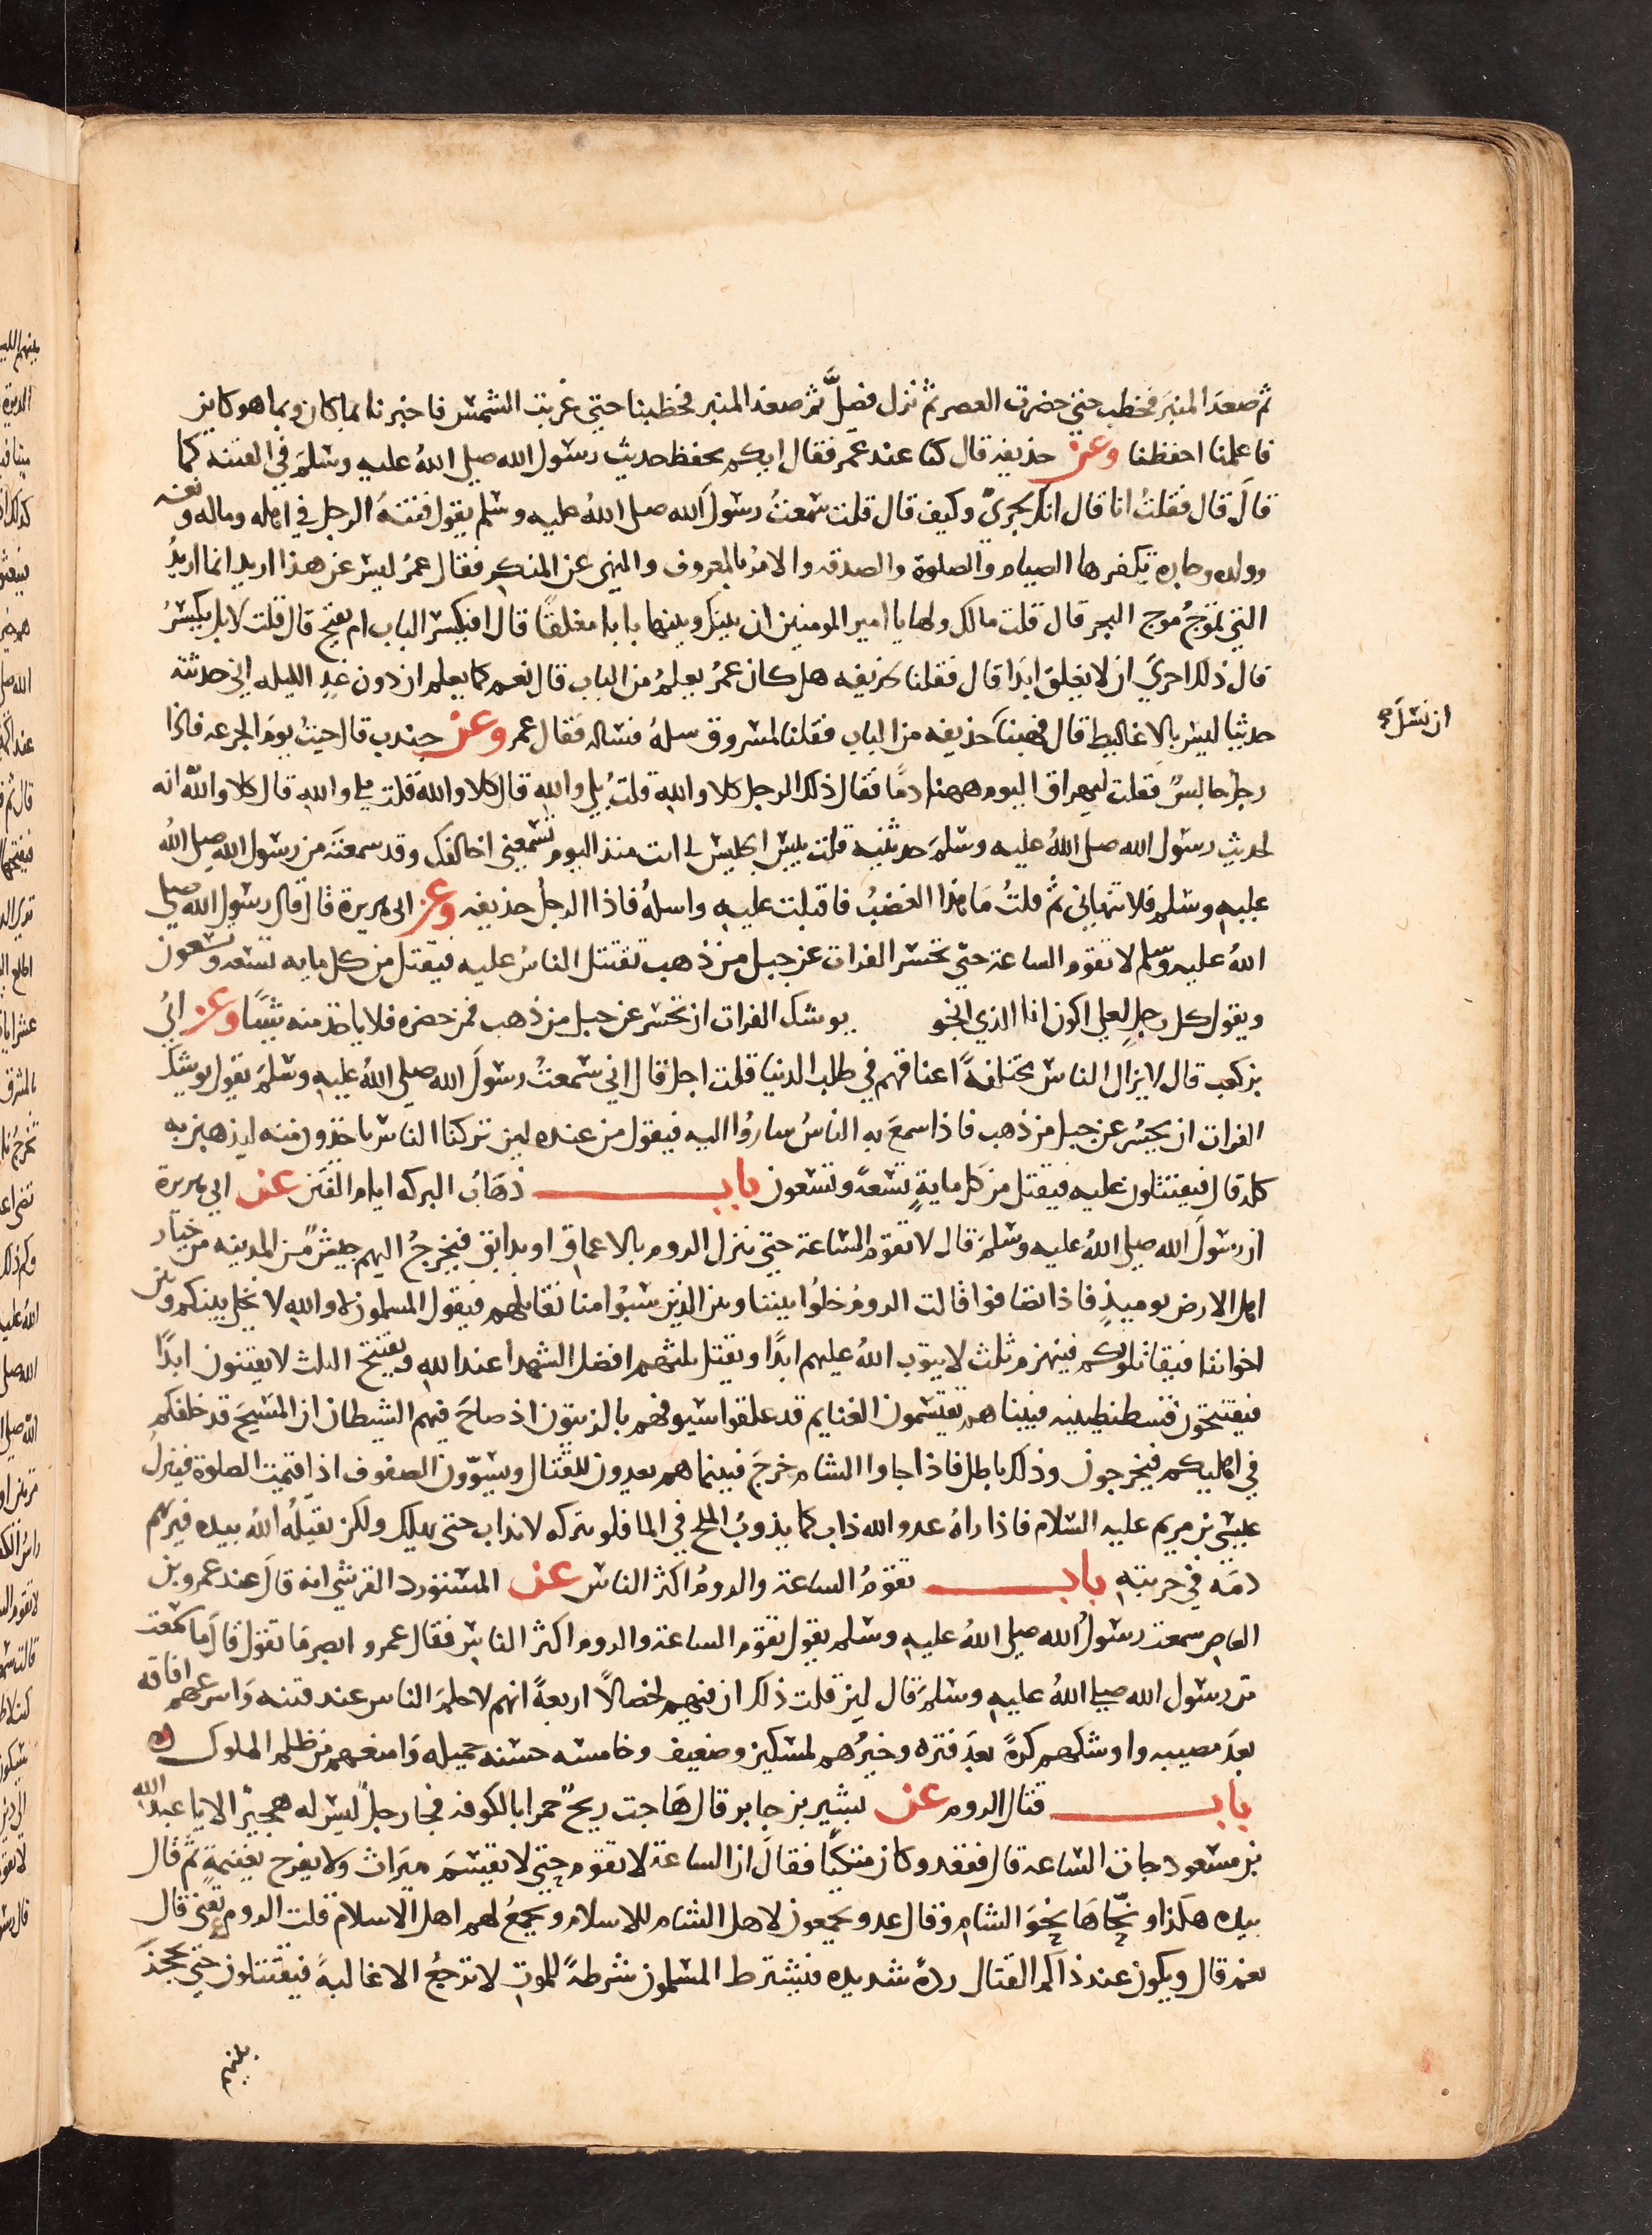 ثم صعد المنبر فخطب حتى حضرت العصر ثم نزل فصلَّى ثم صعد المنبر فخطبنا حتى غربت الشمس فاخبرنا بما كان وبما هو كاين
فاعلمنا احفظنا وعن حذيفه قال كنا عند عمر فقال ايكم يحفظ حديث رسول الله صلى الله عليه وسلم في الفتنه كما
قال قال فقلت انا قال انك لجرى وكيف قال قلت سمعت رسول الله صلى الله عليه وسلم يقول فتنة الرجل في اهله وماله ونفسه
وولده وجاره يكفرها الصيام والصلوة والصدقه والامر بالمعروف والنهى عن المنكر فقال عمر ليس عن هذا اريد انما اريد
التي تموج موج البحر قال قلت مالك ولها يا امير المومنين ان بينك وبينها بابا مغلقا قال افيكسر الباب ام يفتح قال قلت لا بل يكسر
قال ذلك احرى ان لا يغلق ابدا قال فقلنا لحذيفه هل كان عمر يعلم من الباب قال نعم كما يعلم ان دون غدٍ الليله اني حدثته
حديثا ليس بالاغاليط قال فهبنا حذيفه من الباب فقلنا لمسروق سله فساله فقال عمر وعن جندب قال جيت يوم الجرعه فاذا
ان نسأل
رجل جالس فقلت ليهراق اليوم ههنا دما فقال ذلك الرجل كلا والله قلت بلى والله قال كلا والله قلت بلى والله قال كلا والله انه
لحديث رسول الله صلى الله عليه وسلم حدثنيه قلت بيس الجليس لي انت منذ اليوم تسمعني اخالفك وقد سمعته من رسول الله صلى الله
عليه وسلم فلا تنهاني ثم قلت ما هذا الغضب فاقبلت عليه واساله فاذا الرجل حذيفه وعن ابي هريرة قال قال رسول الله صلى
الله عليه وسلم لا تقوم الساعة حتى يحسر الفرات عن جبل من ذهب تقتتل الناس عليه فيقتل من كل مايه تسعه وتسعون
ويقول كل رجل لعلي اكون انا الذي انجو يوشك الفرات ان تحسر عن جبل من ذهب فمن حضره فلا ياخذ منه شيًا وعن ابي
بن كعب قال لا يزال الناس مختلفةً اعناقهم في طلب الدنيا قلت اجل قال اني سمعت رسول الله صلى الله عليه وسلم يقول يوشك
الفرات ان يحسر عن جبل من ذهب فاذا سمع به الناس ساروا اليه فيقول من عنده لين تركنا الناس ياخذون منه ليذهبن به
كله قال فيقتتلون عليه فيقتل من كل مايةٍ تسعةً وتسعون باب ذهاب البركه ايام الفتن عن ابي هريرة
ان رسول الله صلى الله عليه وسلم قال لا تقوم الساعة حتى ينزل الروم بالاعماق او بدابق فيخرج اليهم جيش من المدينه من خيار
اهل الارض يوميذ فاذا تصافوا قالت الروم خلوا بيننا وبين الذين سبوا منا نقاتلهم فيقول المسلمون لا والله لا نخلي بينكم وبين
اخواننا فيقاتلونكم فينهزم ثلث لا يتوب الله عليهم ابدًا ويقتل ثلثهم افضل الشهدا عند الله ويفتتح الثلث لا يفتنون ابدًا
فيفتتحون قسطنطينيه فبينا هم يقتسمون الغنايم قد علقوا سيوفهم بالزيتون اذ صاح فيهم الشيطان ان المسيح قد خلفكم
في اهليكم فيخرجون وذلك باطل فاذا جاوا الشام خرج فبينما هم يعدون للقتال ويسوّون الصفوف اذ اقيمت الصلوة فينزل
عيسى بن مريم عليه السلام فاذا راه عدو الله ذاب كما يذوب الملح في الما فلو تركه لانذاب حتى يهلك ولكن يقتله الله بيده فيريهم
دمه في حربته باب تقوم الساعة والروم اكثر الناس عن المستورد القرشي انه قال عند عمرو بن
العاص سمعت رسول الله صلى الله عليه وسلم يقول تقوم الساعة والروم اكثر الناس فقال عمرو ابصر ما تقول قال ما سمعت
من رسول الله صلى الله عليه وسلم قال لين قلت ذلك ان فيهم لخصالًا اربعةً انهم لاحلم الناس عند فتنه واسرعهم افاقه
بعد مصيبه واوشكهم كرةً بعد فتره وخيرهم لمسكين وضعيف وخامسه حسنه جميله وامنعهم من ظلم الملوك
باب قتال الروم عن بشير بن جابر قال هاجت ريح حمرا بالكوفه فجا رجل ليس له هجير الا يا عبد الله
بن مسعود جات الساعه قال فقعد وكان متكيًا فقال ان الساعة لا تقوم حتى لا يقسم ميراث ولا يفرح بغنيمةٍ ثم قال
بيده هكذا ونحّاها نحو الشام وقال عدو يجمعون لاهل الشام للاسلام ويجمع لهم اهل الاسلام قلت الروم تعني قال
نعم قال ويكون عند ذاكم القتال ردةً شديده فيشترط المسلمون شرطةً للموت لا ترجع الا غالبةً فيقتتلون حتى يحجز
بينهم